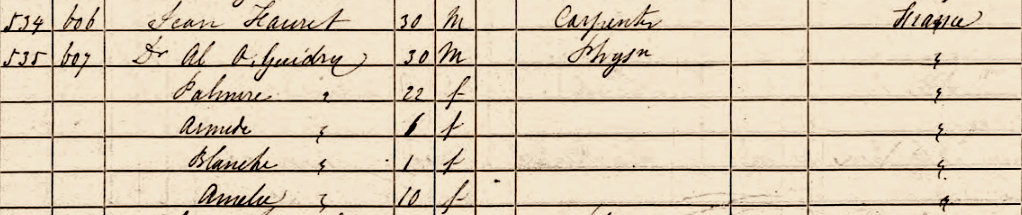 534 606 Jean Hauret 30 M Carpenter France
535 607 Dr Al O. Guidry 30 M Physn "
Palmire " 22 f "
Armede " 6 f "
Blanche " 1 f "
Amelie " 10 f "